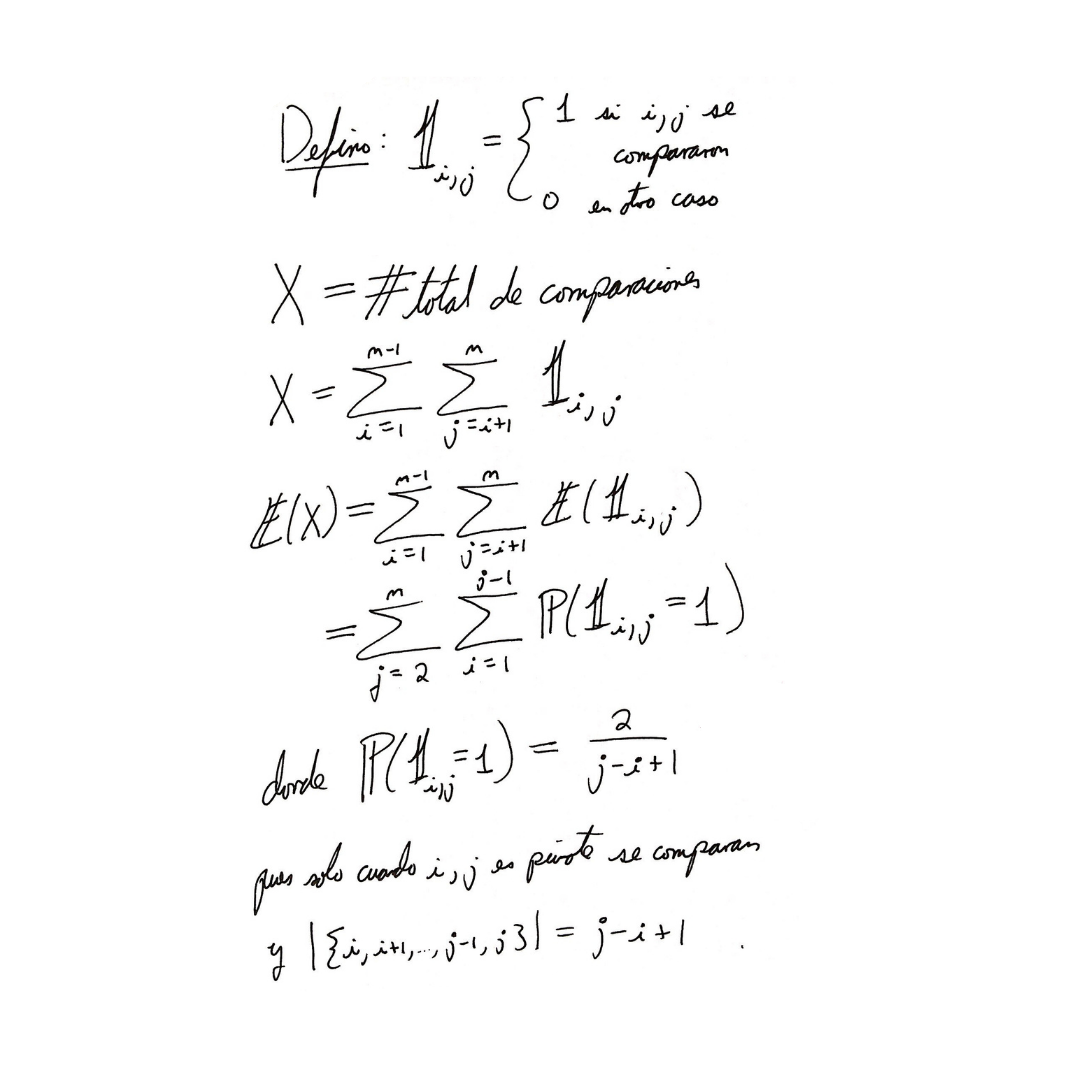 Defino: 𝟙_{i,j} = { 1 si i,j se
compararon
0 en otro caso
X = # total de comparaciones
X = ∑_{i=1}^{n-1} ∑_{j=i+1}^{n} 𝟙_{i,j}
𝔼(X) = ∑_{i=1}^{n-1} ∑_{j=i+1}^{n} 𝔼(𝟙_{i,j})
= ∑_{j=2}^{n} ∑_{i=1}^{j-1} ℙ(𝟙_{i,j} = 1)
donde ℙ(𝟙_{i,j} = 1) = 2/(j-i+1)
pues solo cuando i,j es pivote se comparan
y |{i, i+1, ..., j-1, j}| = j-i+1 .